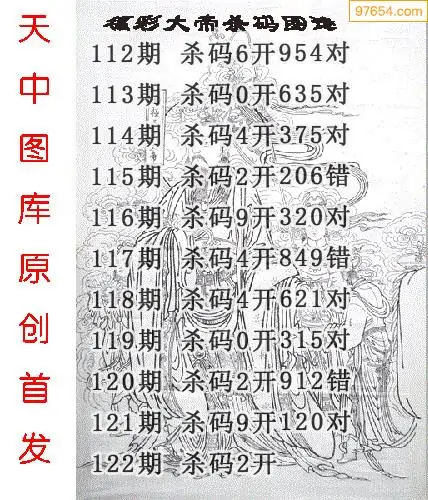 97654.com
福彩大帝杀码图谜
112期 杀码6开954对
113期 杀码0开635对
114期 杀码4开375对
115期 杀码2开206错
116期 杀码9开320对
117期 杀码4开849错
118期 杀码4开621对
119期 杀码0开315对
120期 杀码2开912错
121期 杀码9开120对
122期 杀码2开
天中图库原创首发